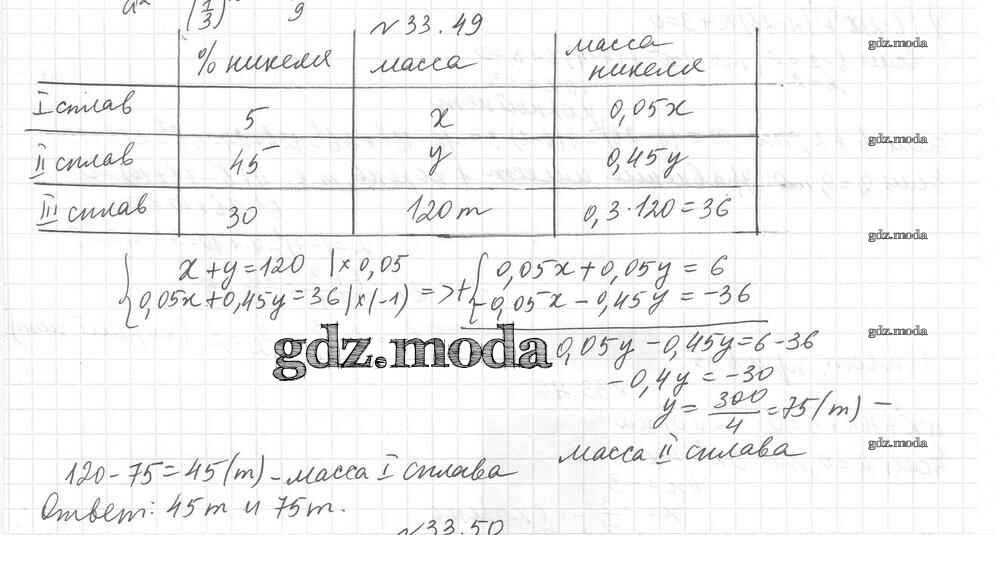 (1/3) 9
№33.49
% никеля масса масса никеля
I сплав 5 x 0,05x
II сплав 45 y 0,45y
III сплав 30 120т 0,3·120=36
{ x+y=120 |×0,05
0,05x+0,45y=36 |×(-1) => + { 0,05x+0,05y=6
-0,05x-0,45y=-36
0,05y-0,45y=6-36
-0,4y=-30
y=300/4=75(т) –
масса II сплава
120-75=45(т) – масса I сплава
Ответ: 45т и 75т.
№33.50
gdz.moda
gdz.moda
gdz.moda
gdz.moda
gdz.moda
gdz.moda